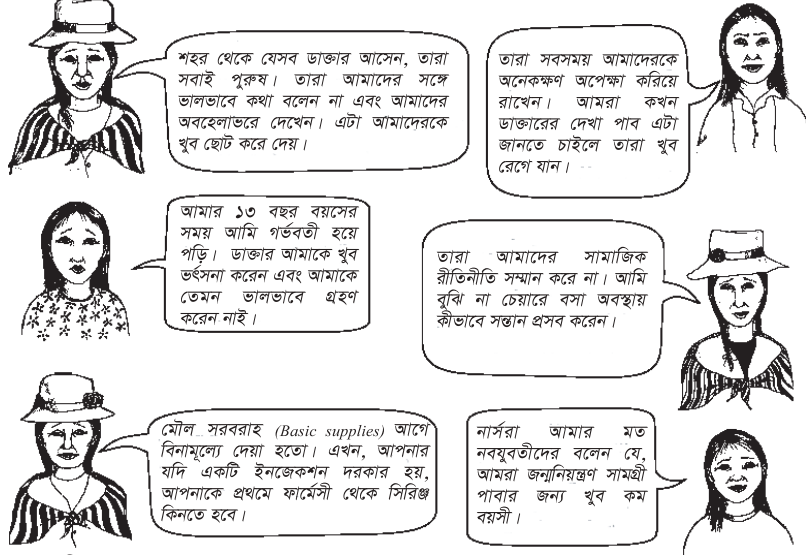 শহর থেকে যেসব ডাক্তার আসেন, তারা
সবাই পুরুষ। তারা আমাদের সঙ্গে
ভালভাবে কথা বলেন না এবং আমাদের
অবহেলাভরে দেখেন। এটা আমাদেরকে
খুব ছোট করে দেয়।
তারা সবসময় আমাদেরকে
অনেকক্ষণ অপেক্ষা করিয়ে
রাখেন। আমরা কখন
ডাক্তারের দেখা পাব এটা
জানতে চাইলে তারা খুব
রেগে যান।
আমার ১৩ বছর বয়সের
সময় আমি গর্ভবতী হয়ে
পড়ি। ডাক্তার আমাকে খুব
ভর্ৎসনা করেন এবং আমাকে
তেমন ভালভাবে গ্রহণ
করেন নাই।
তারা আমাদের সামাজিক
রীতিনীতি সম্মান করে না। আমি
বুঝি না চেয়ারে বসা অবস্থায়
কীভাবে সন্তান প্রসব করেন।
মৌল সরবরাহ (Basic supplies) আগে
বিনামূল্যে দেয়া হতো। এখন, আপনার
যদি একটি ইনজেকশন দরকার হয়,
আপনাকে প্রথমে ফার্মেসী থেকে সিরিঞ্জ
কিনতে হবে।
নার্সরা আমার মত
নবযুবতীদের বলেন যে,
আমরা জন্মনিয়ন্ত্রণ সামগ্রী
পাবার জন্য খুব কম
বয়সী।